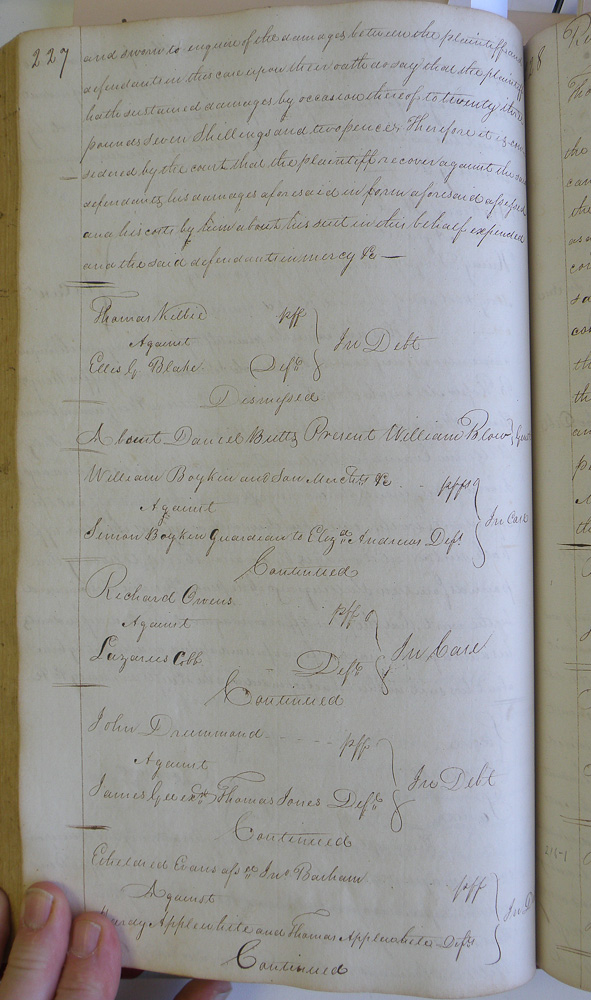 227
and sworn to enquire of the damages between the plaintiff and
defendants in this case upon their oath do say that the plaintiff
hath sustained damages by occasion thereof to twenty three
pounds seven Shillings and two pence, Therefore it is con
sidered by the court that the plaintiff recover against the said
defendants his damages aforesaid in form aforesaid assessed
and his costs by him about his suit in this behalf expended
and the said defendants in mercy &c —
Thomas Kelbie pff
Against In Debt
Ellis G Blake Deft
Dismissed
Absent Daniel Butts Present William Blow
William Boykin and &c pffs
Against In Case
Simon Boykin Guardian to Elizath Andrews Deft
Continued
Richard Owens pff
Against In Case
Lazarus Cobb Deft
Continued
John Drummond pff
Against In Debt
James Thomas Jones Deft
Continued
Etheldred Evans asse Jno Barham pff
Against
Hardy Applewhite and Thomas Applewhite Defts
Continued